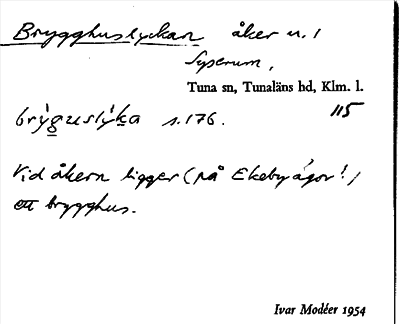 Brygghuslyckan åker n. 1
Syserum,
Tuna sn, Tunaläns hd, Klm. l.
brýguslýka s. 176. 115
Vid åkern ligger (på Ekebyägor!)
ett brygghus.
Ivar Modéer 1954